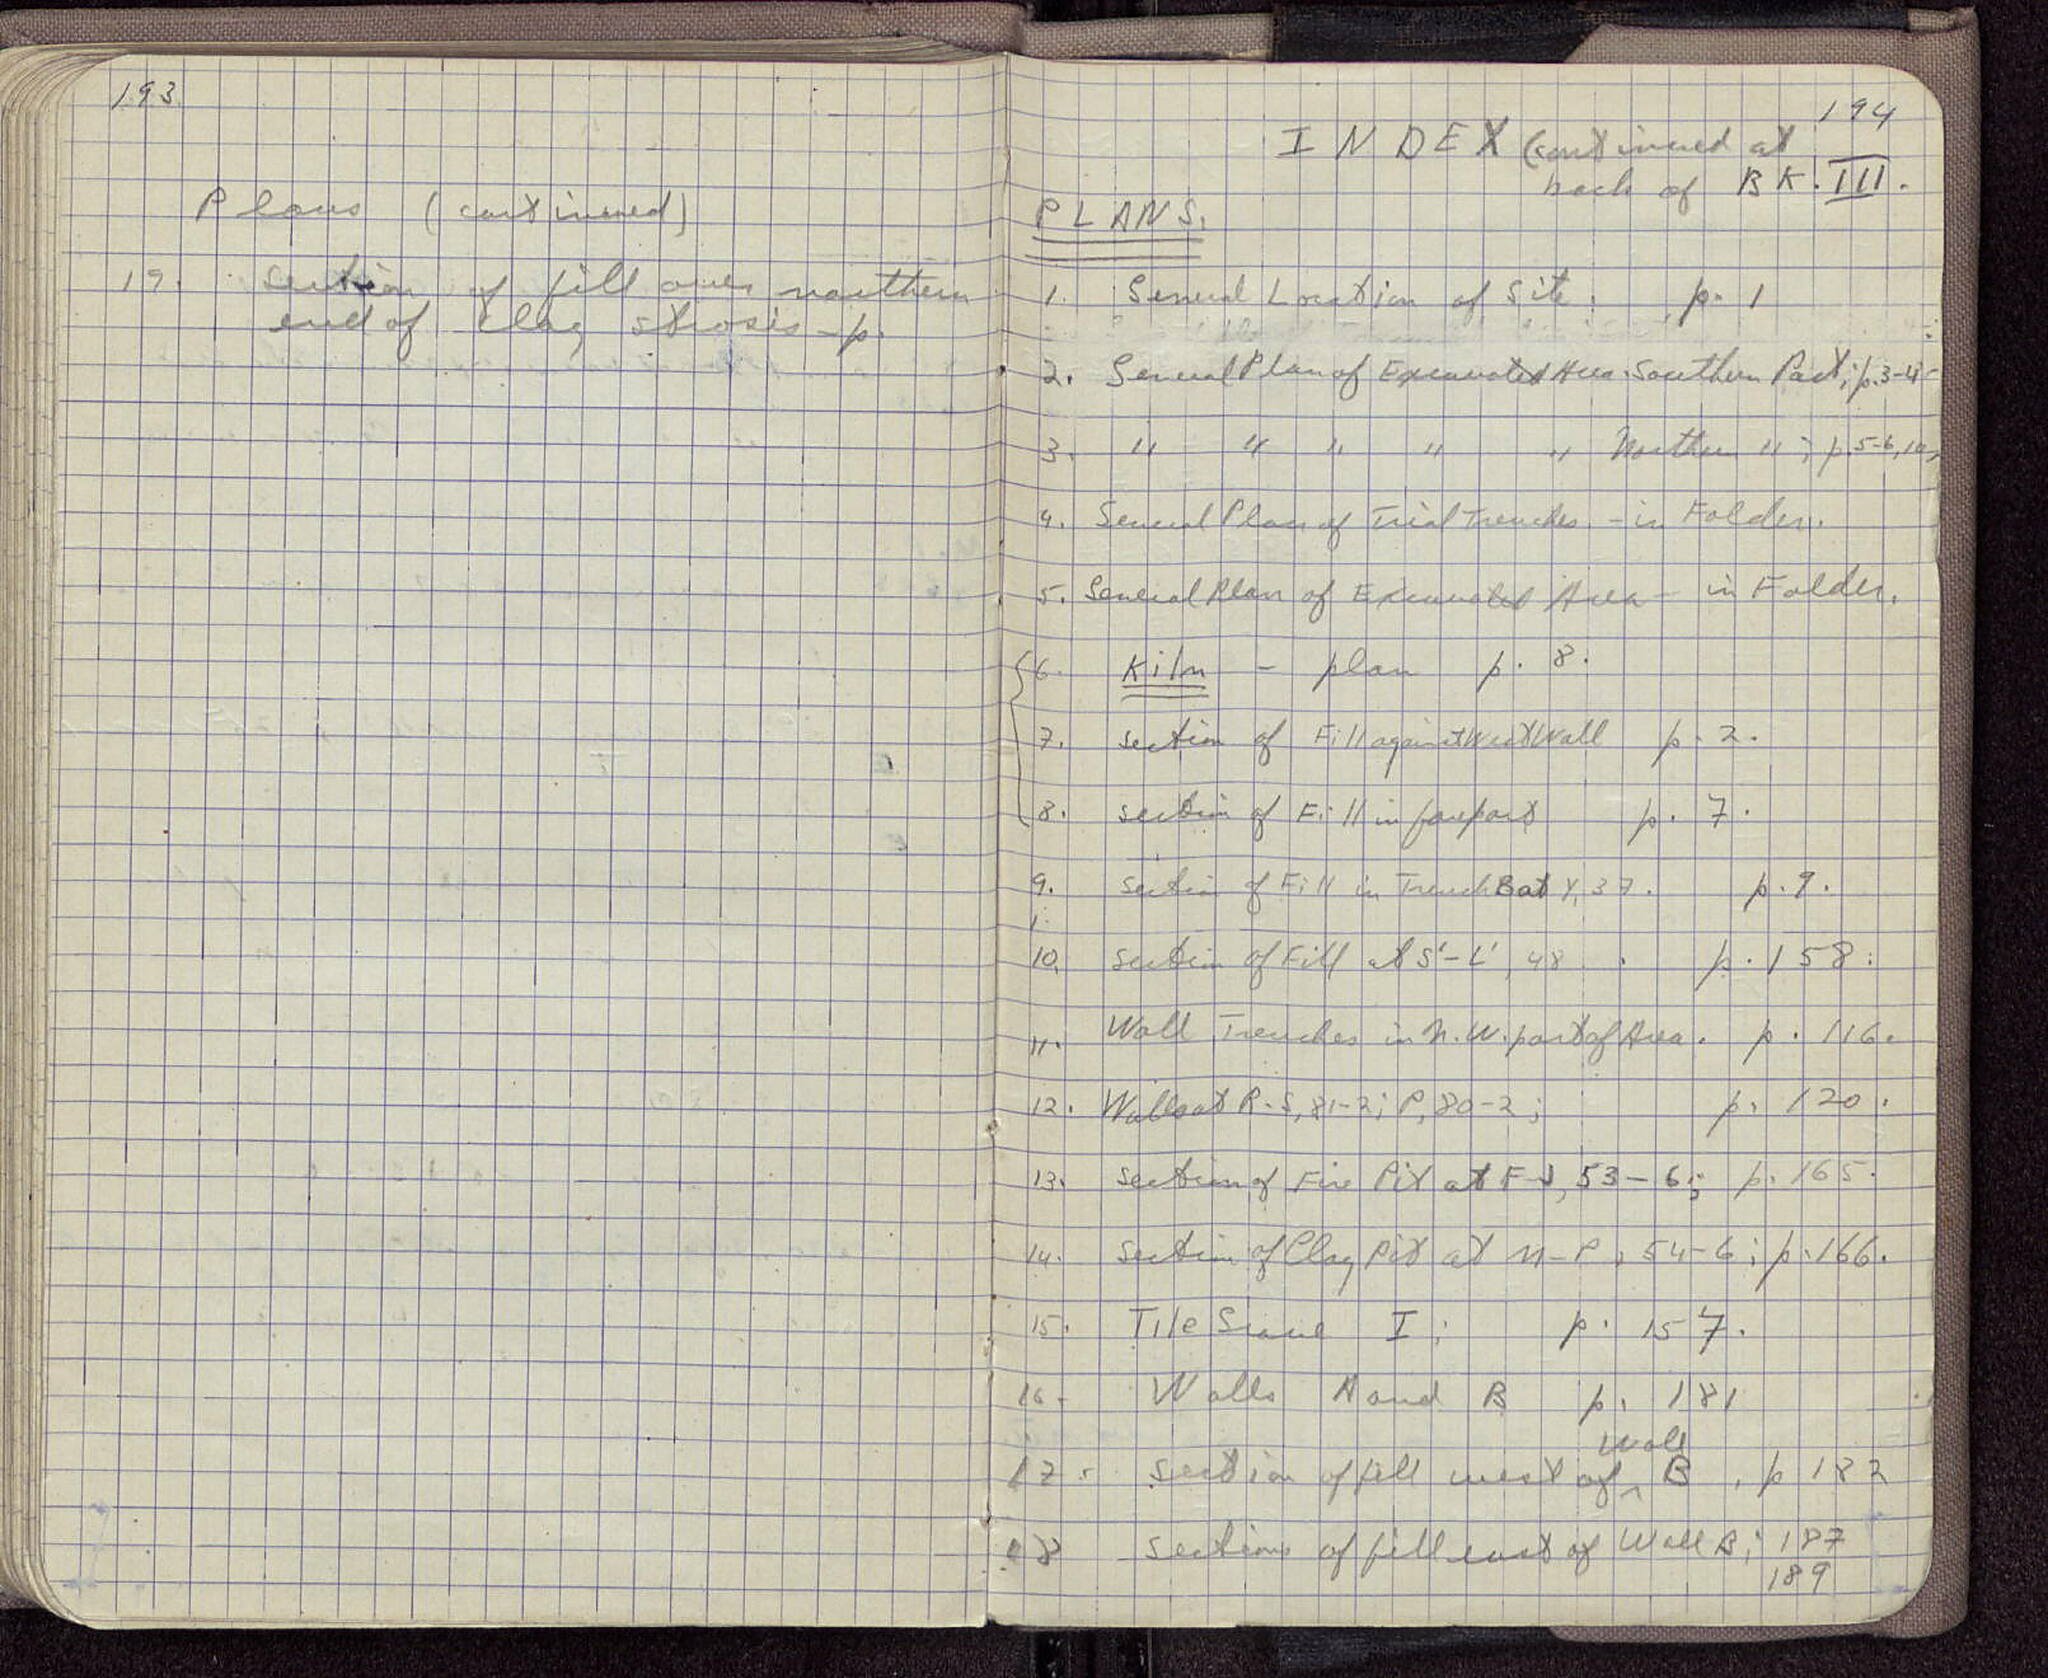 193
Plans (continued)
19. Section of fill over northern
end of clay strosis - p.
194
INDEX (continued at
back of BK. III.
PLANS.
1. General Location of Site. p. 1
2. General Plan of Excavated Area. Southern Part; p. 3-4
3. " " " " " Northern " ; p. 5-6, 10,
4. General Plan of Trial Trenches - in Folder.
5. General Plan of Excavated Area - in Folder.
6. Kiln - plan p. 8.
7. Section of Fill against West Wall p. 2.
8. Section of Fill in forepart p. 7.
9. Section of Fill in Trench B at Y, 37. p. 9.
10. Section of Fill at S'-L', 48. p. 158.
11. Wall Trenches in N.W. part of Area. p. 116.
12. Walls at R-S, 81-2; P, 80-2; p. 120.
13. Section of Fire Pit at F-J, 53-6; p. 165.
14. Section of Clay Pit at N-P, 54-6; p. 166.
15. Tile Grave I; p. 157.
16. Walls A and B p. 181
17. Section of fill west of Wall B, p 182
18 Sections of fill east of Wall B; 187
189